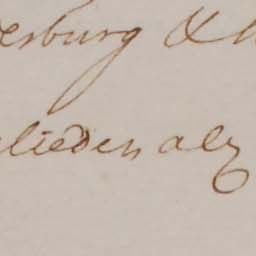 esburg &
lieden alz